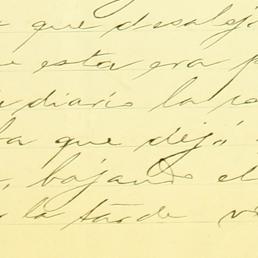 que desaloj
esta era p
diario la
que dejó
, bajando el
la tarde